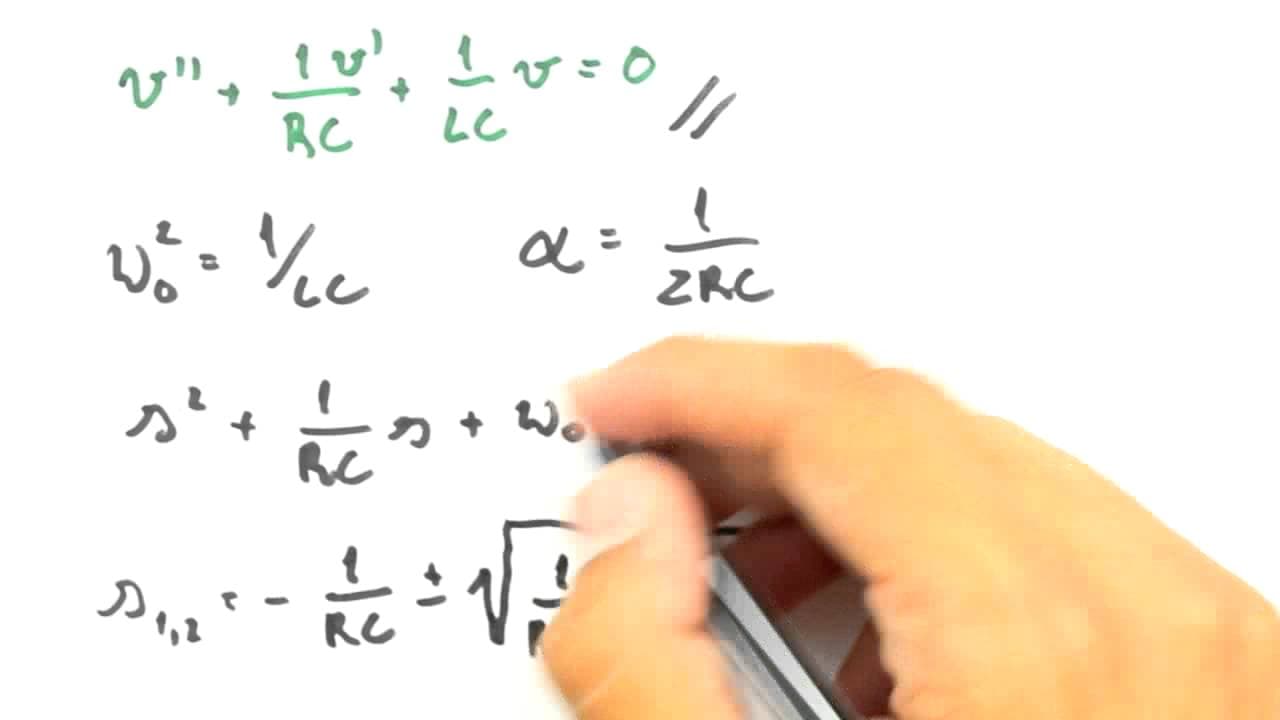 v'' + 1 v' / RC + 1 / LC v = 0 //
w₀² = 1/LC α = 1 / 2RC
s² + 1 / RC s + w₀
s₁,₂ = - 1 / RC ± √ 1